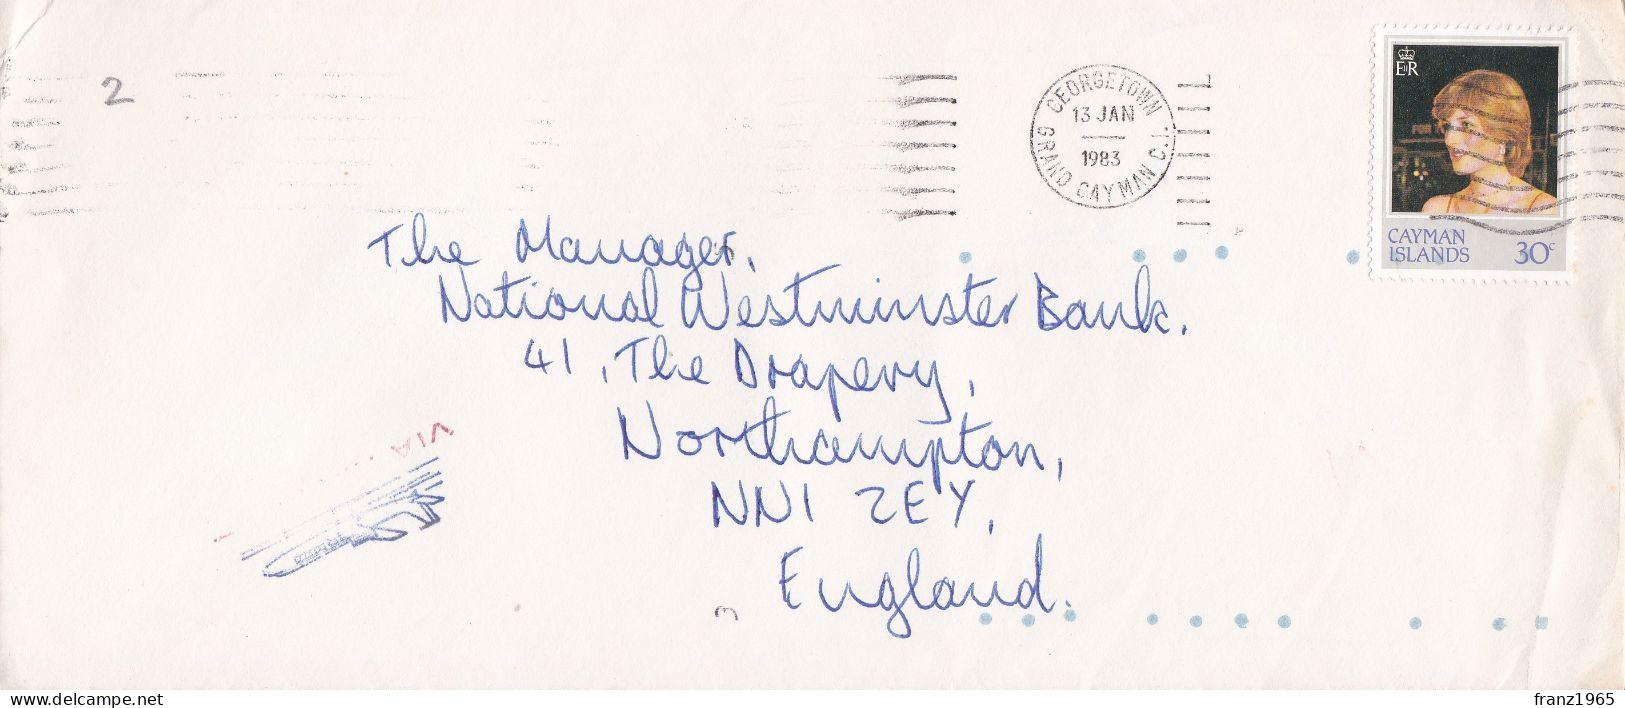 2
GEORGETOWN
13 JAN
1983
GRAND CAYMAN C.I.
EIIR
FOR
CAYMAN
ISLANDS 30c
The Manager,
National Westminster Bank.
41, The Drapery,
Northampton,
NN1 2EY,
England.
VIA
delcampe.net
franz1965